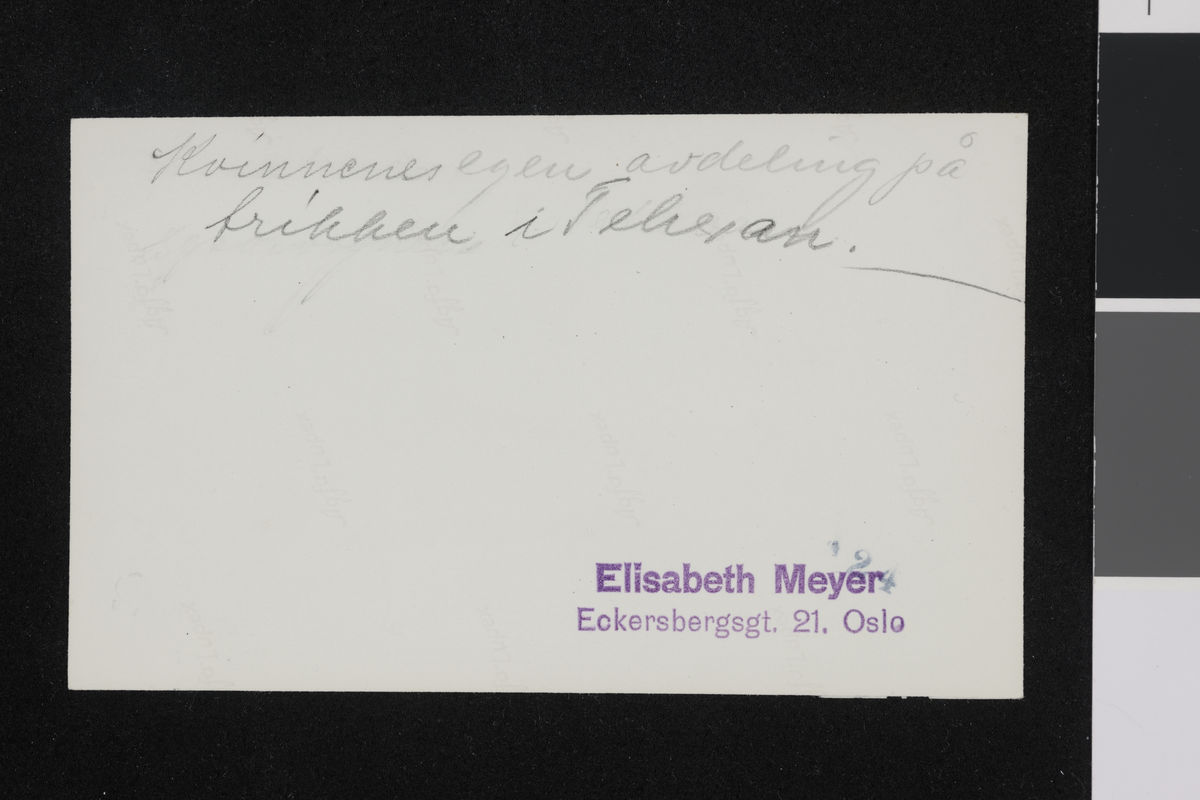 Kvinnenes egen avdeling på
trikken i Teheran.
'24
Elisabeth Meyer
Eckersbergsgt. 21. Oslo